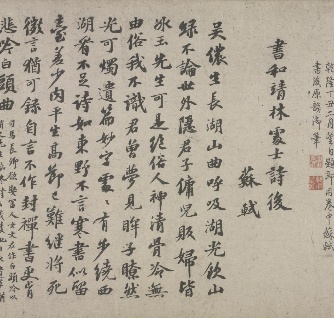 乾隆丁丑二月望日題即用卷中蘇軾
書後原韻御筆
書和靖林處士詩後
蘇軾
吳儂生長湖山曲呼吸湖光飲山
綠不論世外隱君子傭兒販婦皆
冰玉先生可是絕俗人神清骨冷無
由俗我不識君曾夢見眸子瞭然
光可燭遺篇妙字處〻有步繞西
湖看不足詩如東野不言寒書似留
臺差少肉平生高節已難繼將死
微言猶可録自言不作封禪書更肯
悲吟白頭曲